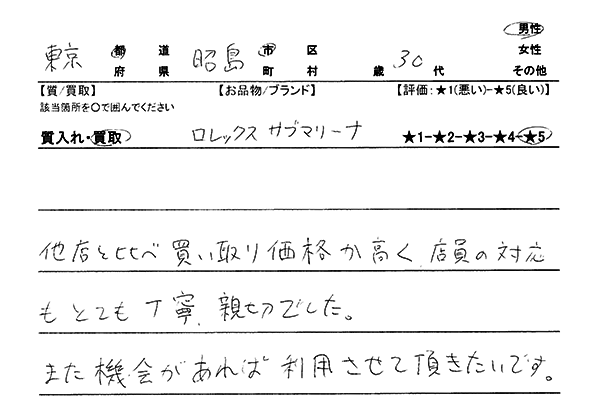 東京 都 道 府 県 昭島 市 区 町 村 歳 30 代 男性 女性 その他
【質/買取】 【お品物/ブランド】 【評価:★1(悪い)-★5(良い)】
該当箇所を○で囲んでください
質入れ・買取 ロレックス サブマリーナ ★1-★2-★3-★4-★5
他店と比べ買い取り価格が高く 店員の対応
もとても丁寧、親切でした。
また機会があれば利用させて頂きたいです。